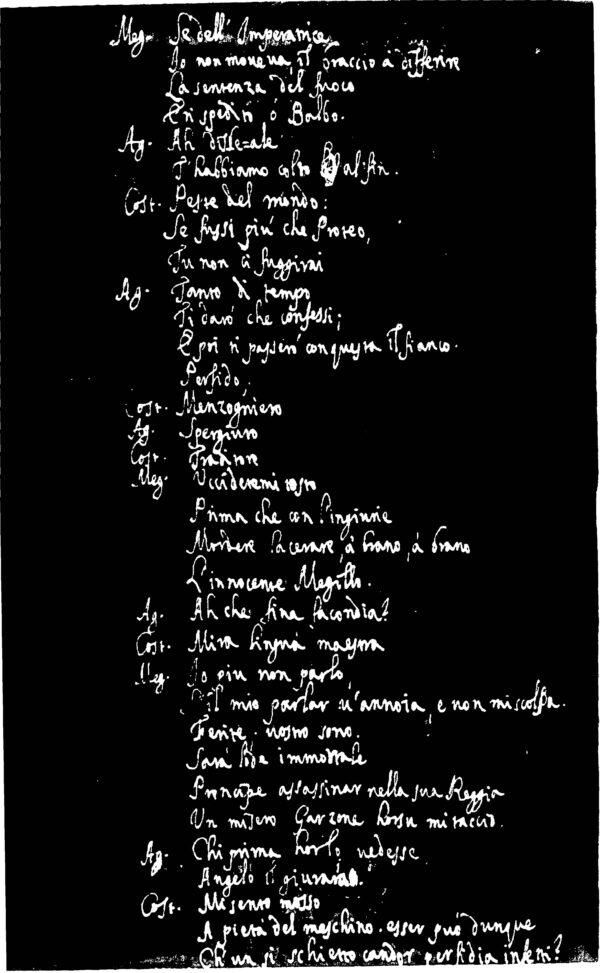 Meg. Se dell' Imperatrice
Io non moveva, il braccio à differire
La sentenza del fuoco
Eri spedito ò Balbo.
Ag. Ah disleale
T'habbiamo colto al fin.
Cost. Peste del mondo:
Se fussi piú che Proteo,
Tu non ci fuggirai
Ag. Tanto di tempo
Ti daró che confessi;
E poi ti passeró con questa il fianco.
Perfido,
Cost. Menzogniero
Ag. Spergiuro
Cost. Traditore
Meg. Uccideremi tosto
Prima che con l'ingiurie
Mordere lacerare, á brano, á brano
L'innocente Megillo.
Ag. Ah che fina facondia?
Cost. Mira lingua maestra
Meg. Io piu non parlo,
il mio parlar u'annoia, e non mi scolpa.
Ferite. uostro sono.
Sará lode immortale
Prencipe assassinar nella sua Reggia
Un misero Garzone horsu mi taccio.
Ag. Chi prima horlo, uedesse
Angelo il giurará.
Cost. Mi sento mosso
A pietá del meschino. esser puó dunque
Ch'un si schietto candor perfidia infetti?